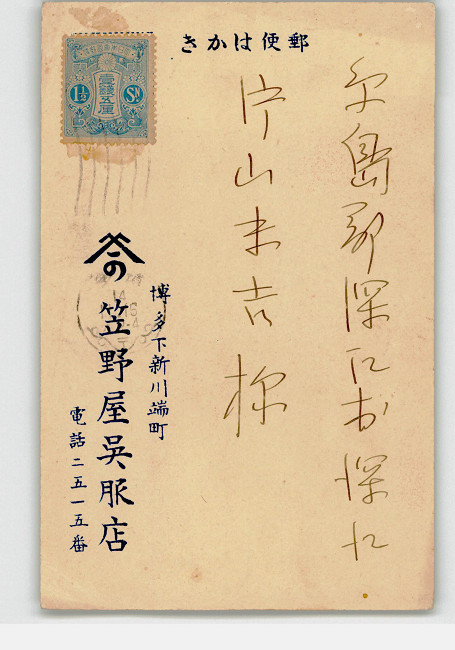 郵便はかき
糸島郡深江村深江
片山末吉様
博多下新川端町
の
笠野屋呉服店
電話二五一五番
壹錢五厘
1½ Sn